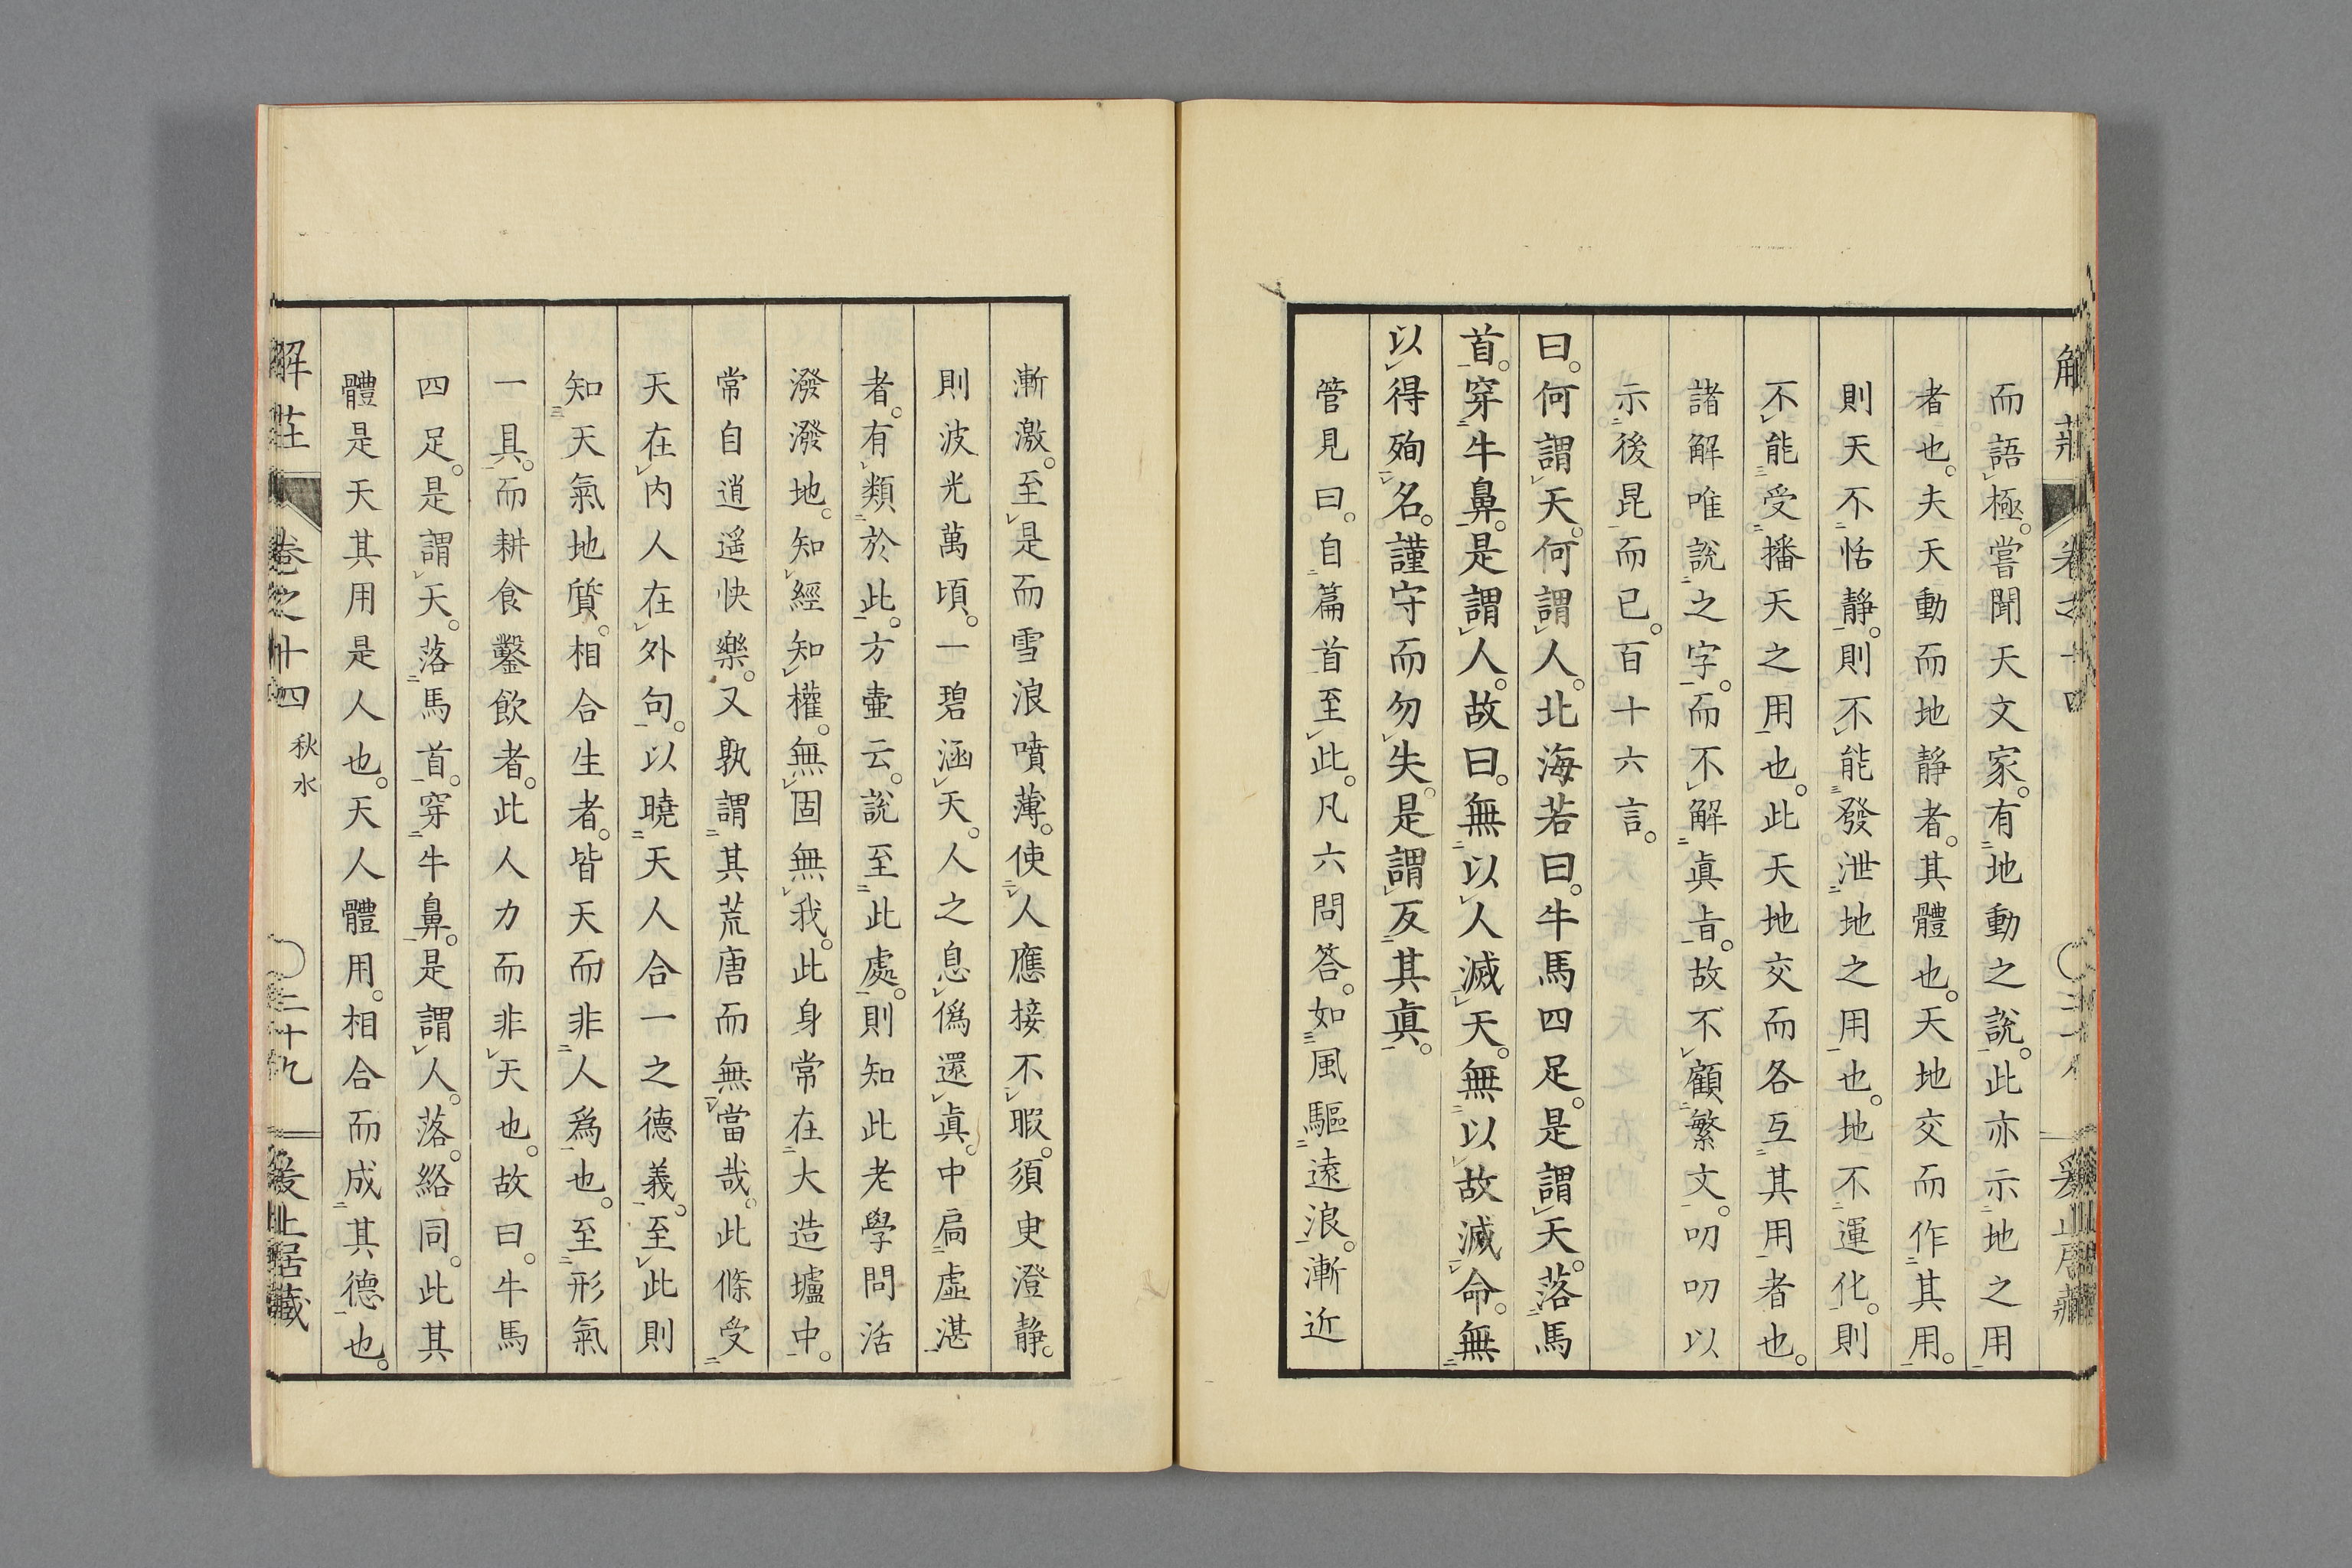 解莊 卷之十四
而語極。嘗聞天文家。有地動之說。此亦示地之用
者也。夫天動而地靜者。其體也。天地交而作其用。
則天不恬靜。則不能發泄地之用也。地不運化。則
不能受播天之用也。此天地交而各互其用者也。
諸解唯說之字。而不解眞旨。故不顧繁文。叨叨以
示後昆而已。百十六言。
曰。何謂天。何謂人。北海若曰。牛馬四足。是謂天。落馬
首。穿牛鼻。是謂人。故曰。無以人滅天。無以故滅命。無
以得殉名。謹守而勿失。是謂反其眞。
管見曰。自篇首至此。凡六問答。如風驅遠浪。漸近
漸激。至是而雪浪噴薄。使人應接不暇。須臾澄靜。
則波光萬頃。一碧涵天。人之息僞還眞。中扃虛湛
者。有類於此。方壷云。說至此處。則知此老學問活
潑潑地。知經知權。無固無我。此身常在大造壚中。
常自逍遥快樂。又孰謂其荒唐而無當哉。此條受
天在内人在外句。以曉天人合一之德義。至此則
知天氣地質。相合生者。皆天而非人爲也。至形氣
一具。而耕食鑿飲者。此人力而非天也。故曰。牛馬
四足。是謂天。落馬首。穿牛鼻。是謂人。落。絡同。此其
體是天其用是人也。天人體用。相合而成其德也。
解莊 卷之十四 秋水 二十九 爰止居藏